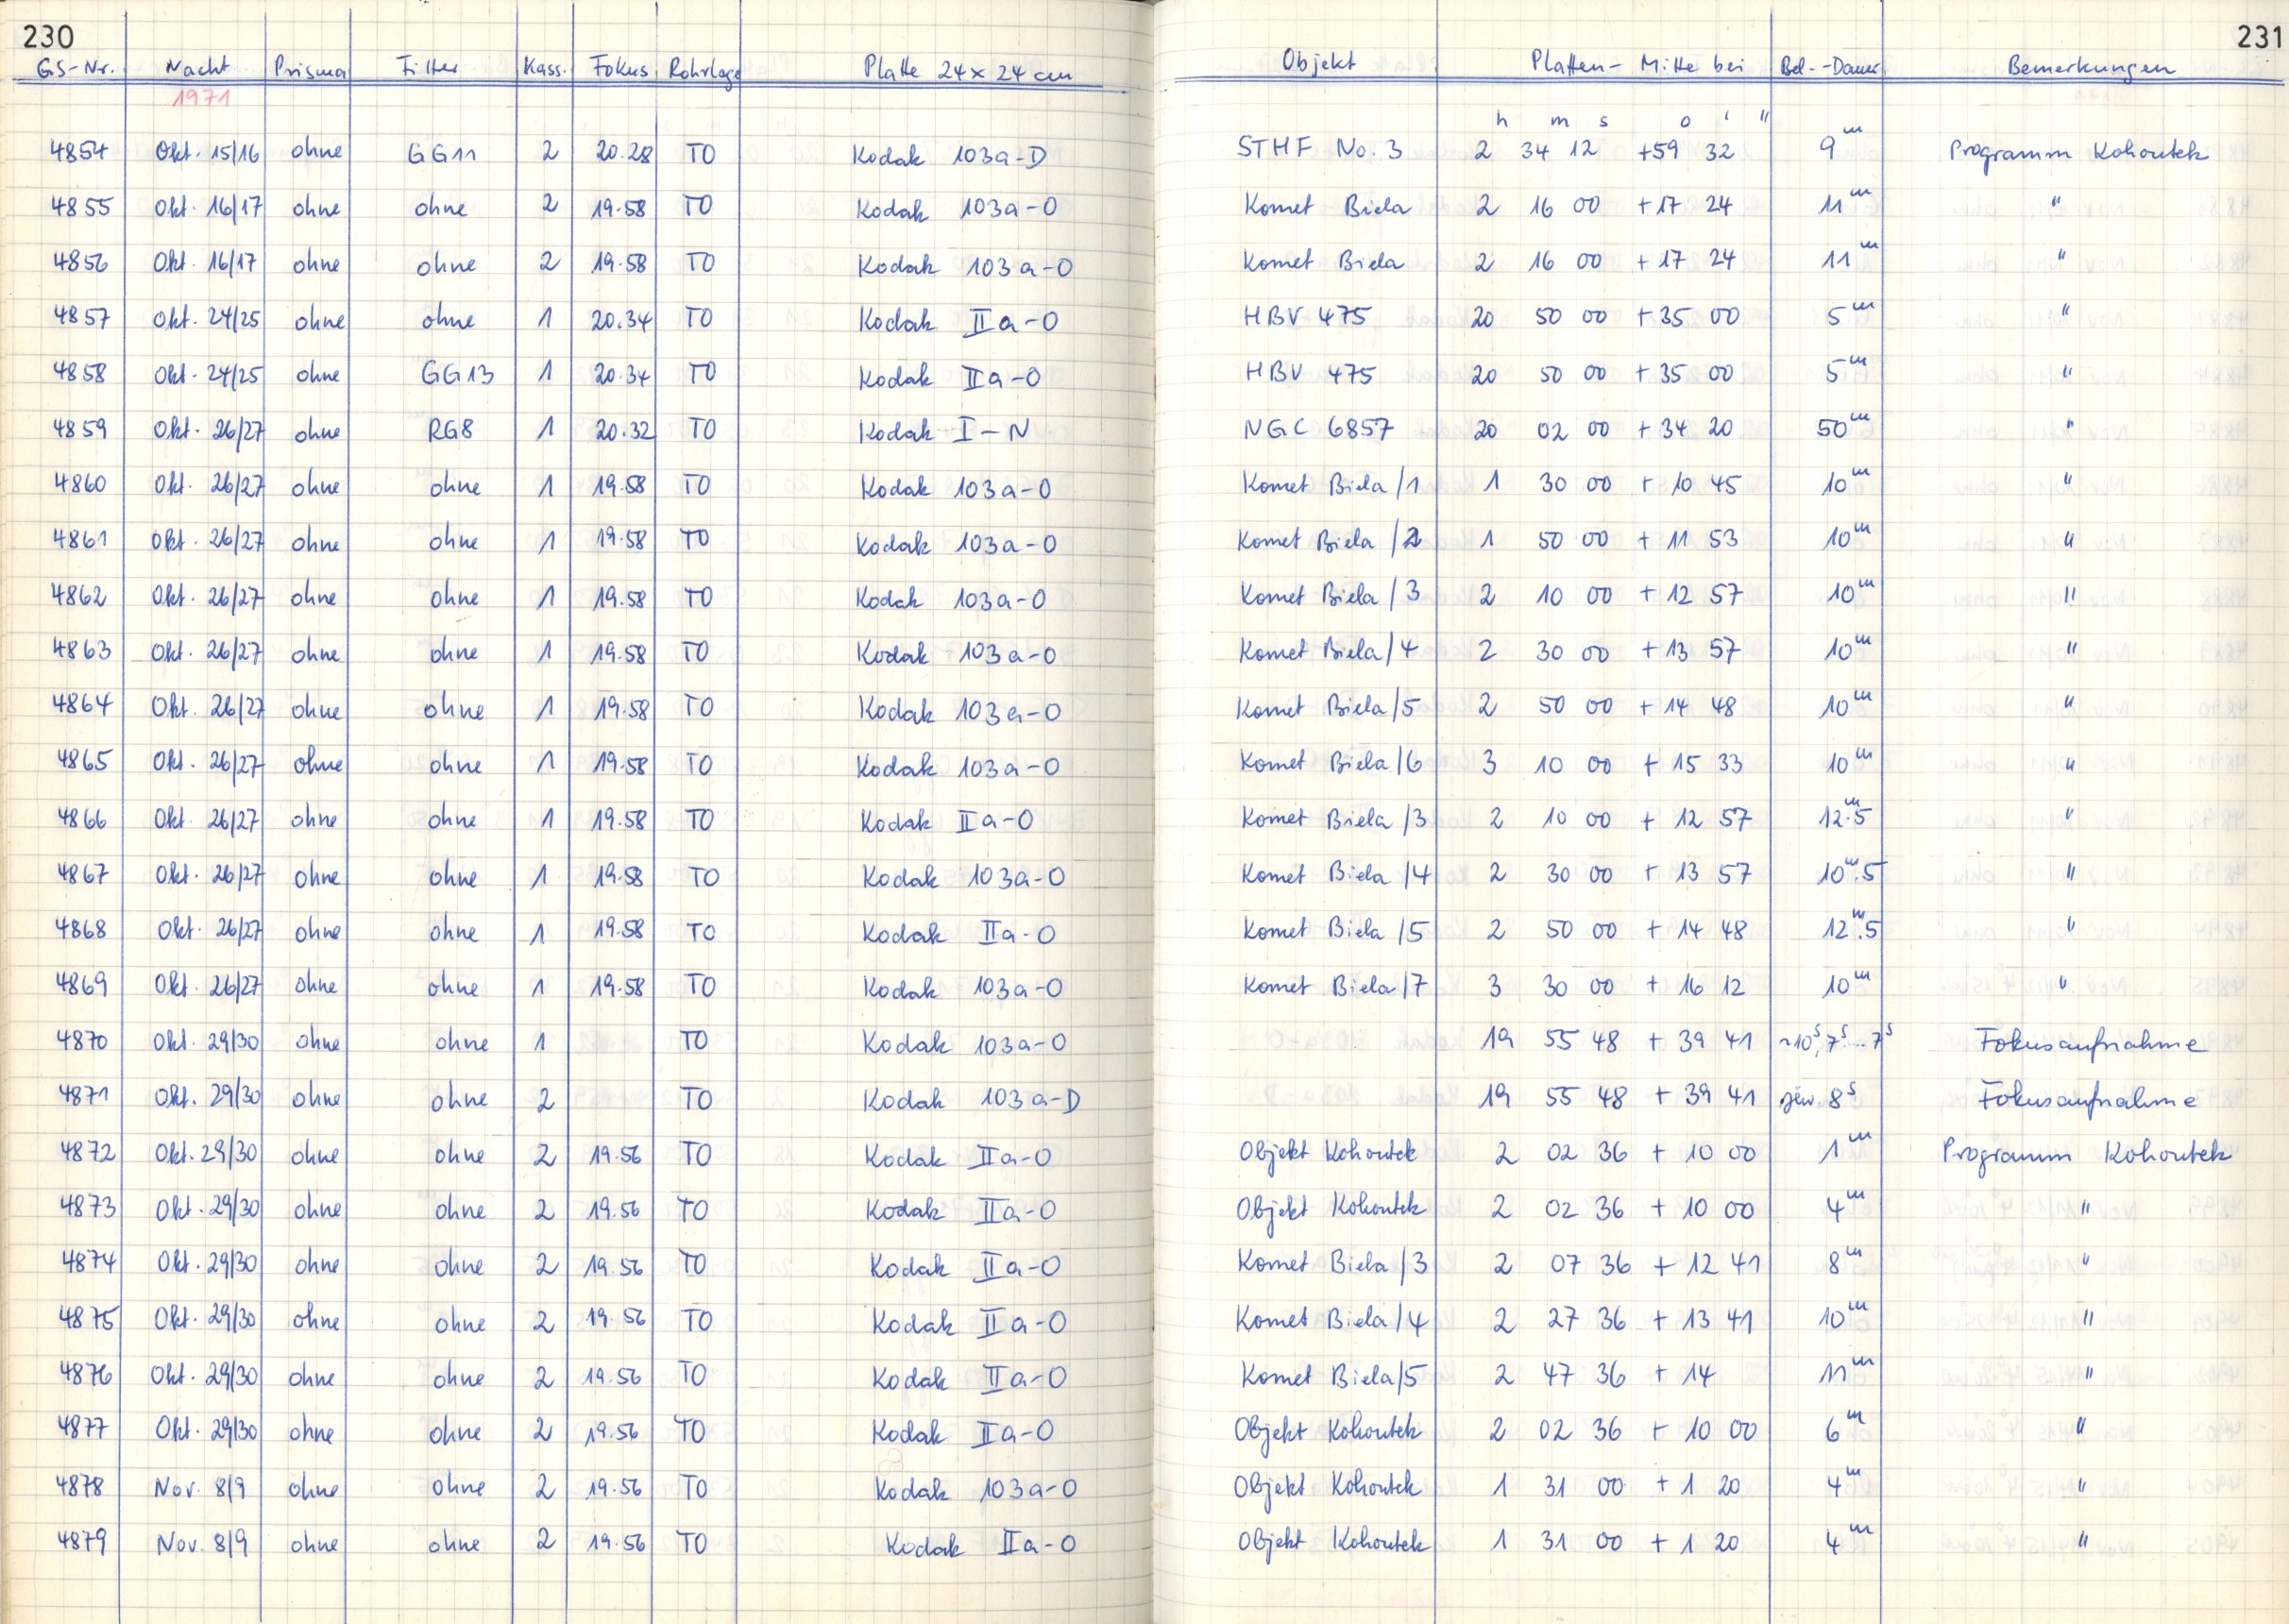 230
231
GS-Nr. Nacht Prisma Filter Kass. Fokus Rohrlage Platte 24 x 24 cm Objekt Platten - Mitte bei Bel.-Dauer Bemerkungen
1971
h m s o ' "
4854 Okt. 15/16 ohne GG11 2 20.28 TO Kodak 103a-D STHF No. 3 2 34 12 +59 32 9m Programm Kohoutek
4855 Okt. 16/17 ohne ohne 2 19.58 TO Kodak 103a-O Komet Biela 2 16 00 +17 24 11m "
4856 Okt. 16/17 ohne ohne 2 19.58 TO Kodak 103a-O Komet Biela 2 16 00 +17 24 11m "
4857 Okt. 24/25 ohne ohne 1 20.34 TO Kodak IIa-O HBV 475 20 50 00 +35 00 5m "
4858 Okt. 24/25 ohne GG13 1 20.34 TO Kodak IIa-O HBV 475 20 50 00 +35 00 5m "
4859 Okt. 26/27 ohne RG8 1 20.32 TO Kodak I-N NGC 6857 20 02 00 +34 20 50m "
4860 Okt. 26/27 ohne ohne 1 19.58 TO Kodak 103a-O Komet Biela/1 1 30 00 +10 45 10m "
4861 Okt. 26/27 ohne ohne 1 19.58 TO Kodak 103a-O Komet Biela/2 1 50 00 +11 53 10m "
4862 Okt. 26/27 ohne ohne 1 19.58 TO Kodak 103a-O Komet Biela/3 2 10 00 +12 57 10m "
4863 Okt. 26/27 ohne ohne 1 19.58 TO Kodak 103a-O Komet Biela/4 2 30 00 +13 57 10m "
4864 Okt. 26/27 ohne ohne 1 19.58 TO Kodak 103a-O Komet Biela/5 2 50 00 +14 48 10m "
4865 Okt. 26/27 ohne ohne 1 19.58 TO Kodak 103a-O Komet Biela/6 3 10 00 +15 33 10m "
4866 Okt. 26/27 ohne ohne 1 19.58 TO Kodak IIa-O Komet Biela/3 2 10 00 +12 57 12m.5 "
4867 Okt. 26/27 ohne ohne 1 19.58 TO Kodak 103a-O Komet Biela/4 2 30 00 +13 57 10m.5 "
4868 Okt. 26/27 ohne ohne 1 19.58 TO Kodak IIa-O Komet Biela/5 2 50 00 +14 48 12m.5 "
4869 Okt. 26/27 ohne ohne 1 19.58 TO Kodak 103a-O Komet Biela/7 3 30 00 +16 12 10m "
4870 Okt. 29/30 ohne ohne 1 TO Kodak 103a-O 19 55 48 +39 41 ~10s, 7s...7s Fokusaufnahme
4871 Okt. 29/30 ohne ohne 2 TO Kodak 103a-D 19 55 48 +39 41 jew. 8s Fokusaufnahme
4872 Okt. 29/30 ohne ohne 2 19.56 TO Kodak IIa-O Objekt Kohoutek 2 02 36 +10 00 1m Programm Kohoutek
4873 Okt. 29/30 ohne ohne 2 19.56 TO Kodak IIa-O Objekt Kohoutek 2 02 36 +10 00 4m "
4874 Okt. 29/30 ohne ohne 2 19.56 TO Kodak IIa-O Komet Biela/3 2 07 36 +12 41 8m "
4875 Okt. 29/30 ohne ohne 2 19.56 TO Kodak IIa-O Komet Biela/4 2 27 36 +13 41 10m "
4876 Okt. 29/30 ohne ohne 2 19.56 TO Kodak IIa-O Komet Biela/5 2 47 36 +14 11m "
4877 Okt. 29/30 ohne ohne 2 19.56 TO Kodak IIa-O Objekt Kohoutek 2 02 36 +10 00 6m "
4878 Nov. 8/9 ohne ohne 2 19.56 TO Kodak 103a-O Objekt Kohoutek 1 31 00 +1 20 4m "
4879 Nov. 8/9 ohne ohne 2 19.56 TO Kodak IIa-O Objekt Kohoutek 1 31 00 +1 20 4m "